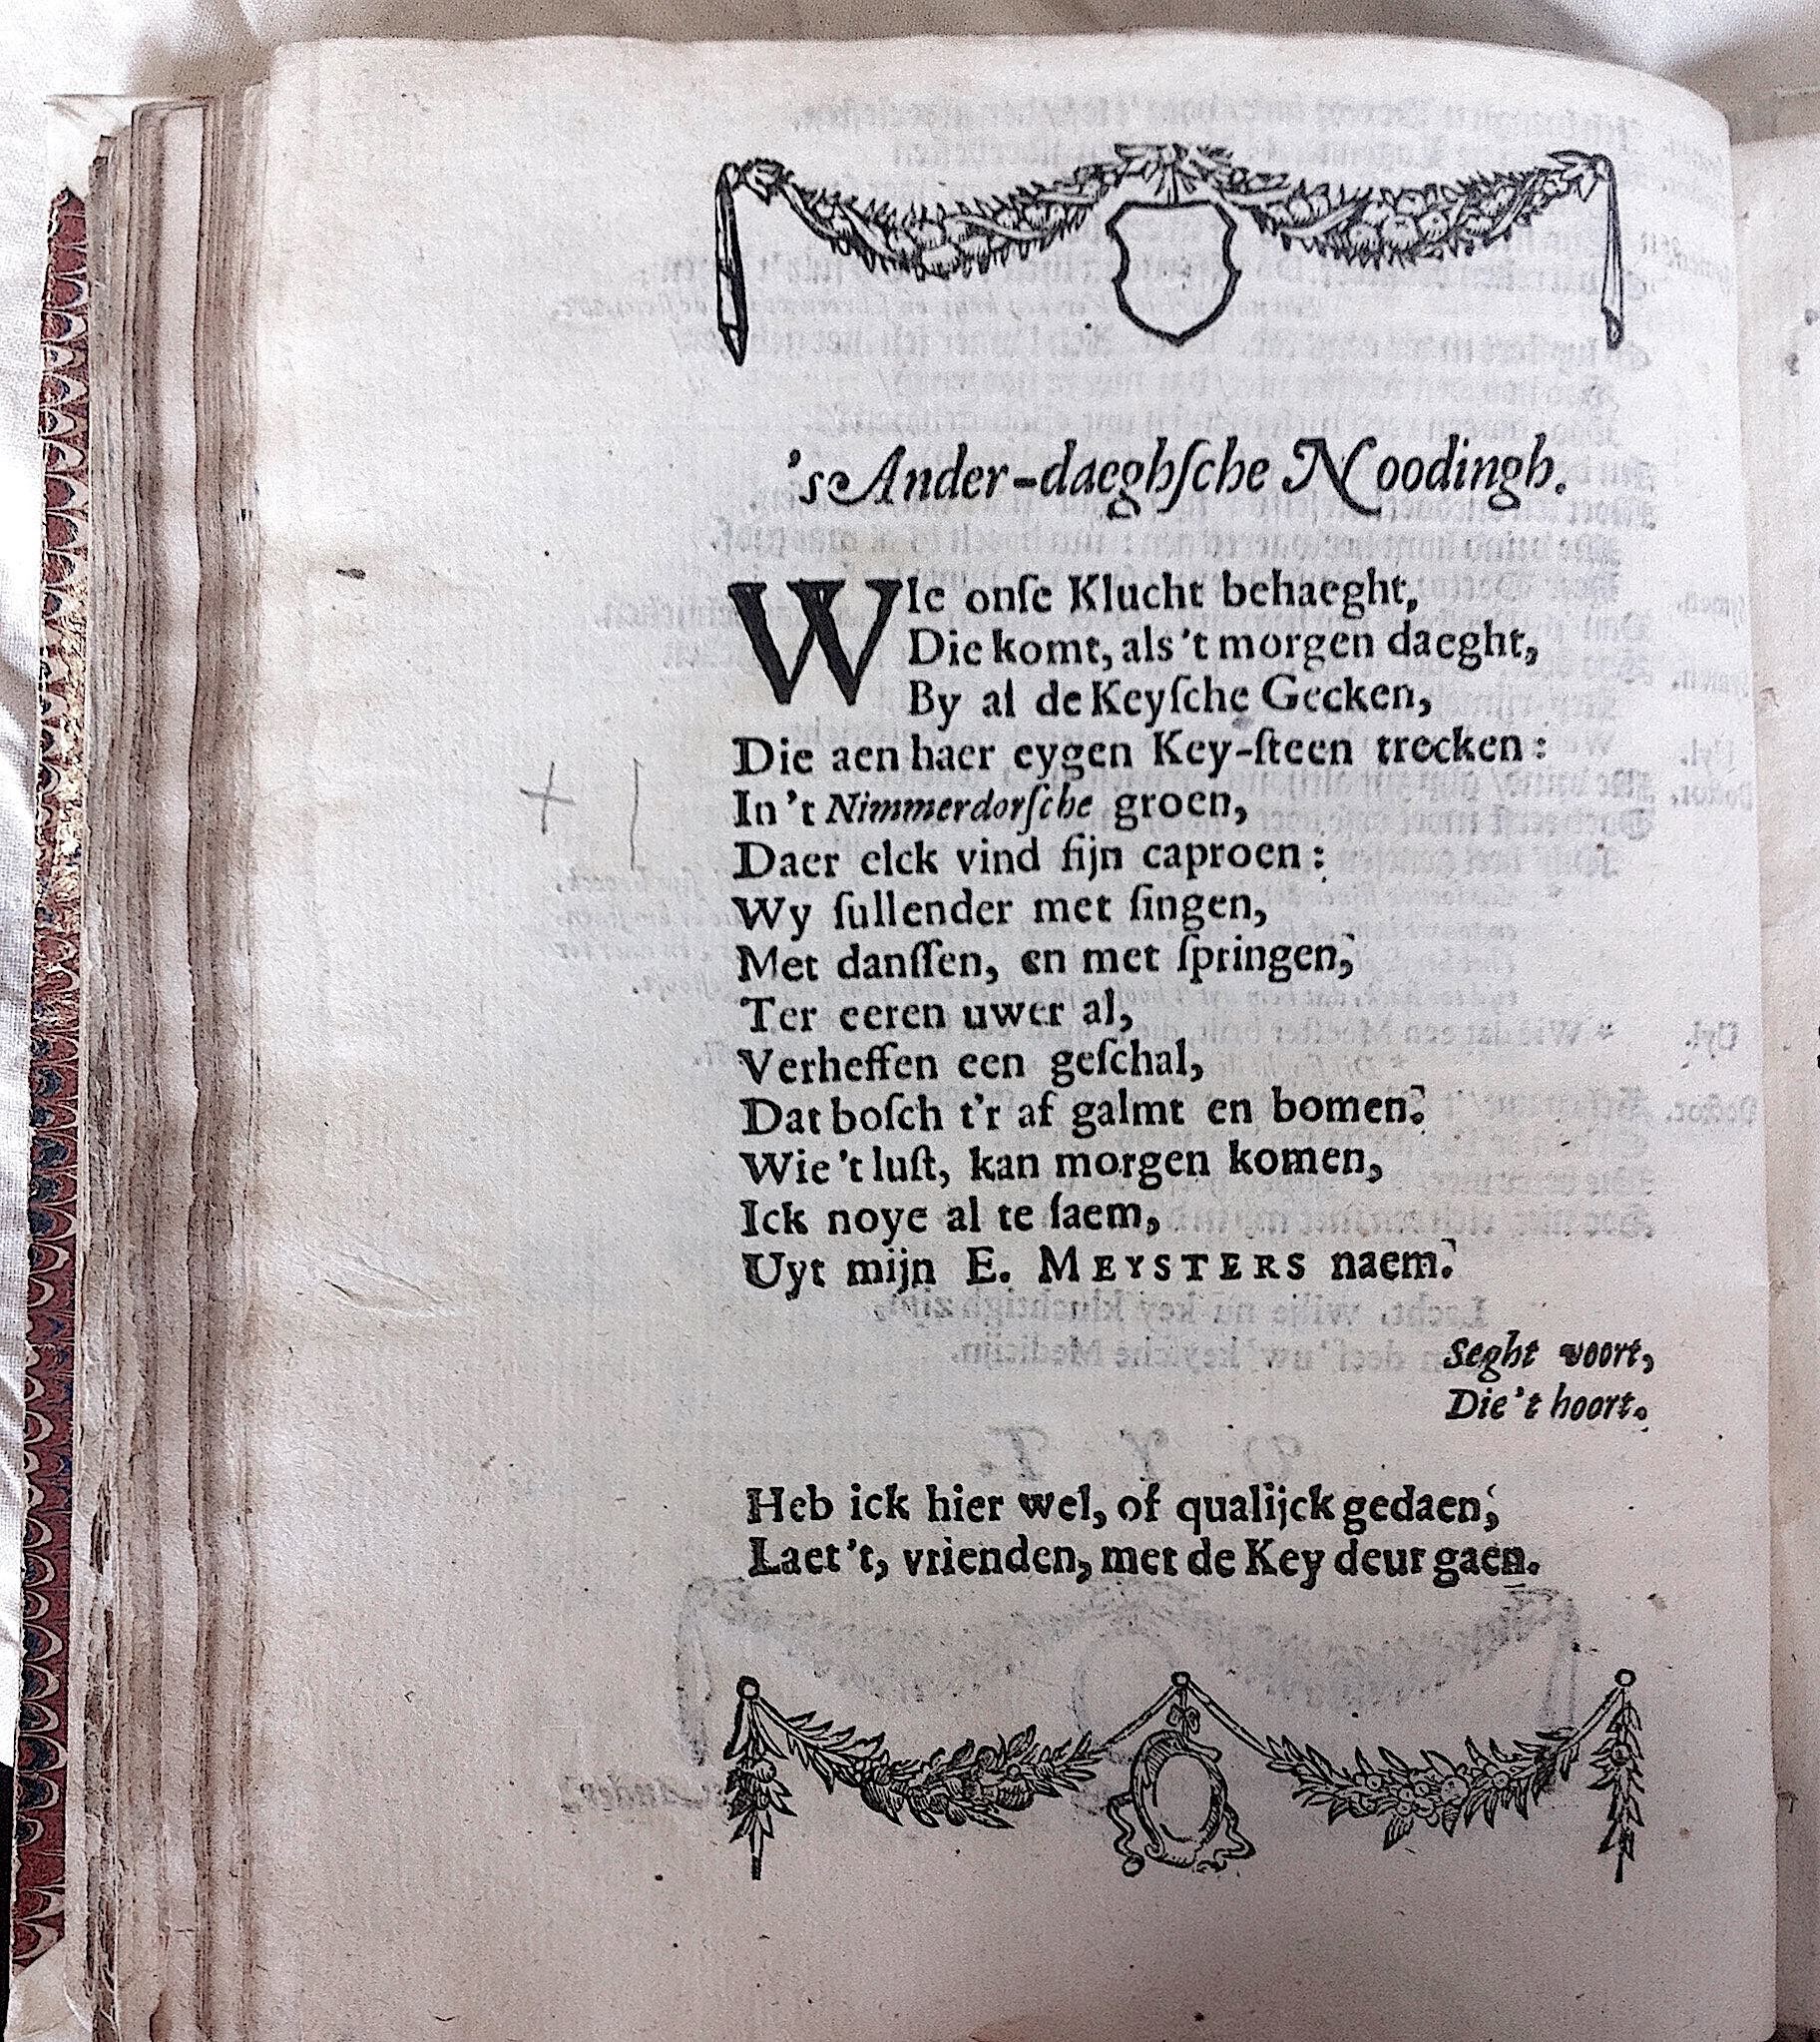 's Ander-daeghſche Noodingh.
WIe onſe Klucht behaeght,
Die komt, als 't morgen daeght,
By al de Keyſche Gecken,
Die aen haer eygen Key-ſteen trecken:
In 't Nimmerdorſche groen,
Daer elck vind ſijn caproen:
Wy ſullender met ſingen,
Met danſſen, en met ſpringen,
Ter eeren uwer al,
Verheffen een geſchal,
Dat boſch t'r af galmt en bomen.
Wie 't luſt, kan morgen komen,
Ick noye al te ſaem,
Uyt mijn E. MEYSTERS naem.
Seght voort,
Die 't hoort.
Heb ick hier wel, of qualijck gedaen,
Laet 't, vrienden, met de Key deur gaen.